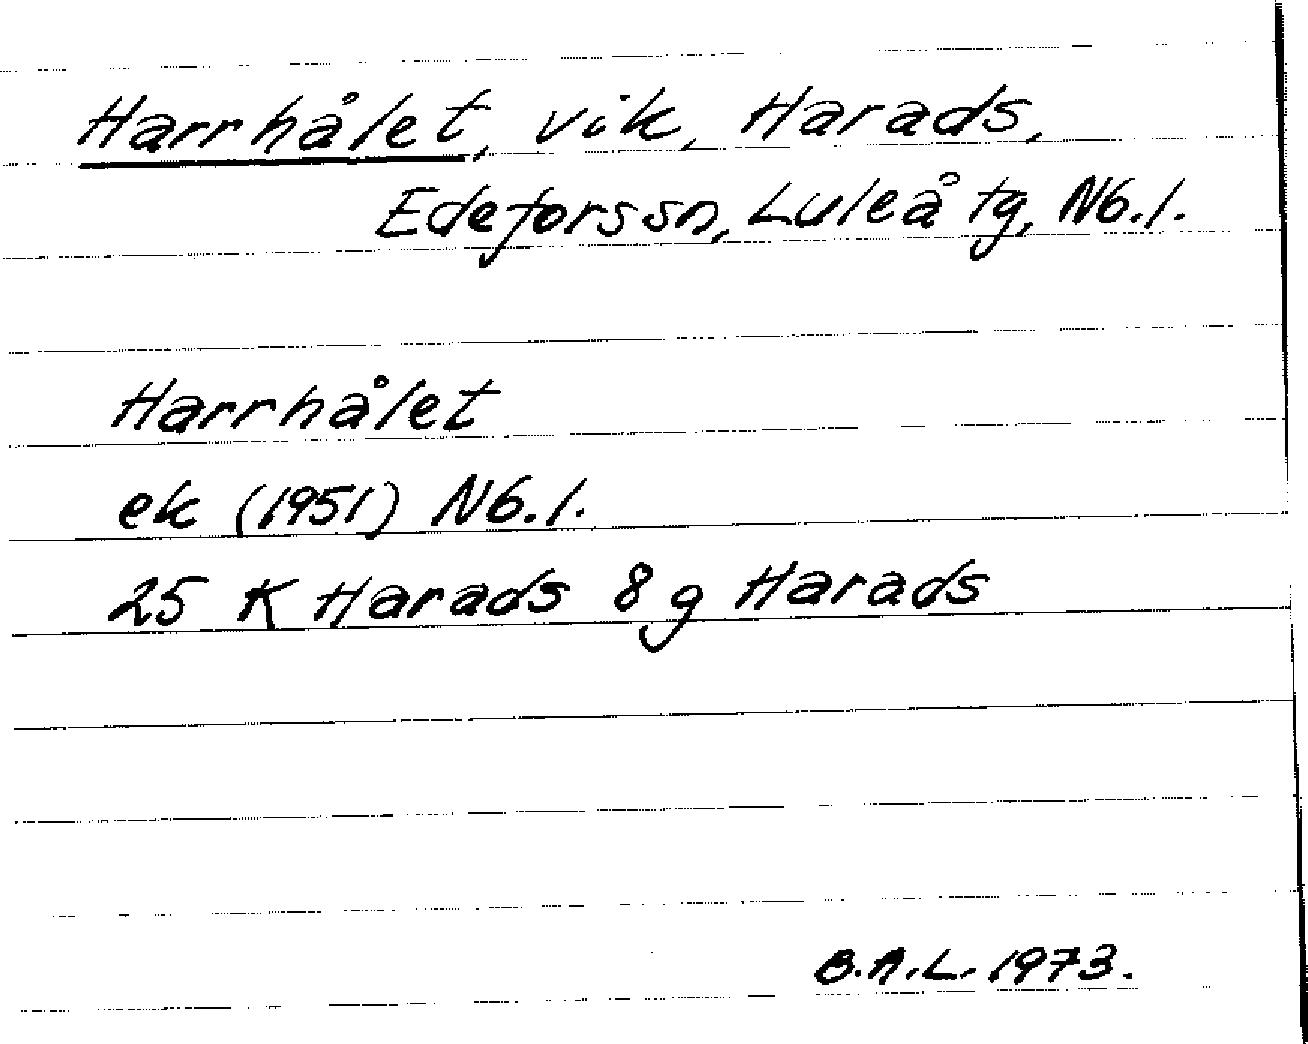 Harrhålet, vik, Harads,
Edeforssn, Luleå tg, Nb.l.
Harrhålet
ek (1951) Nb.l.
25 K Harads 8 g Harads
B.A.L. 1973.